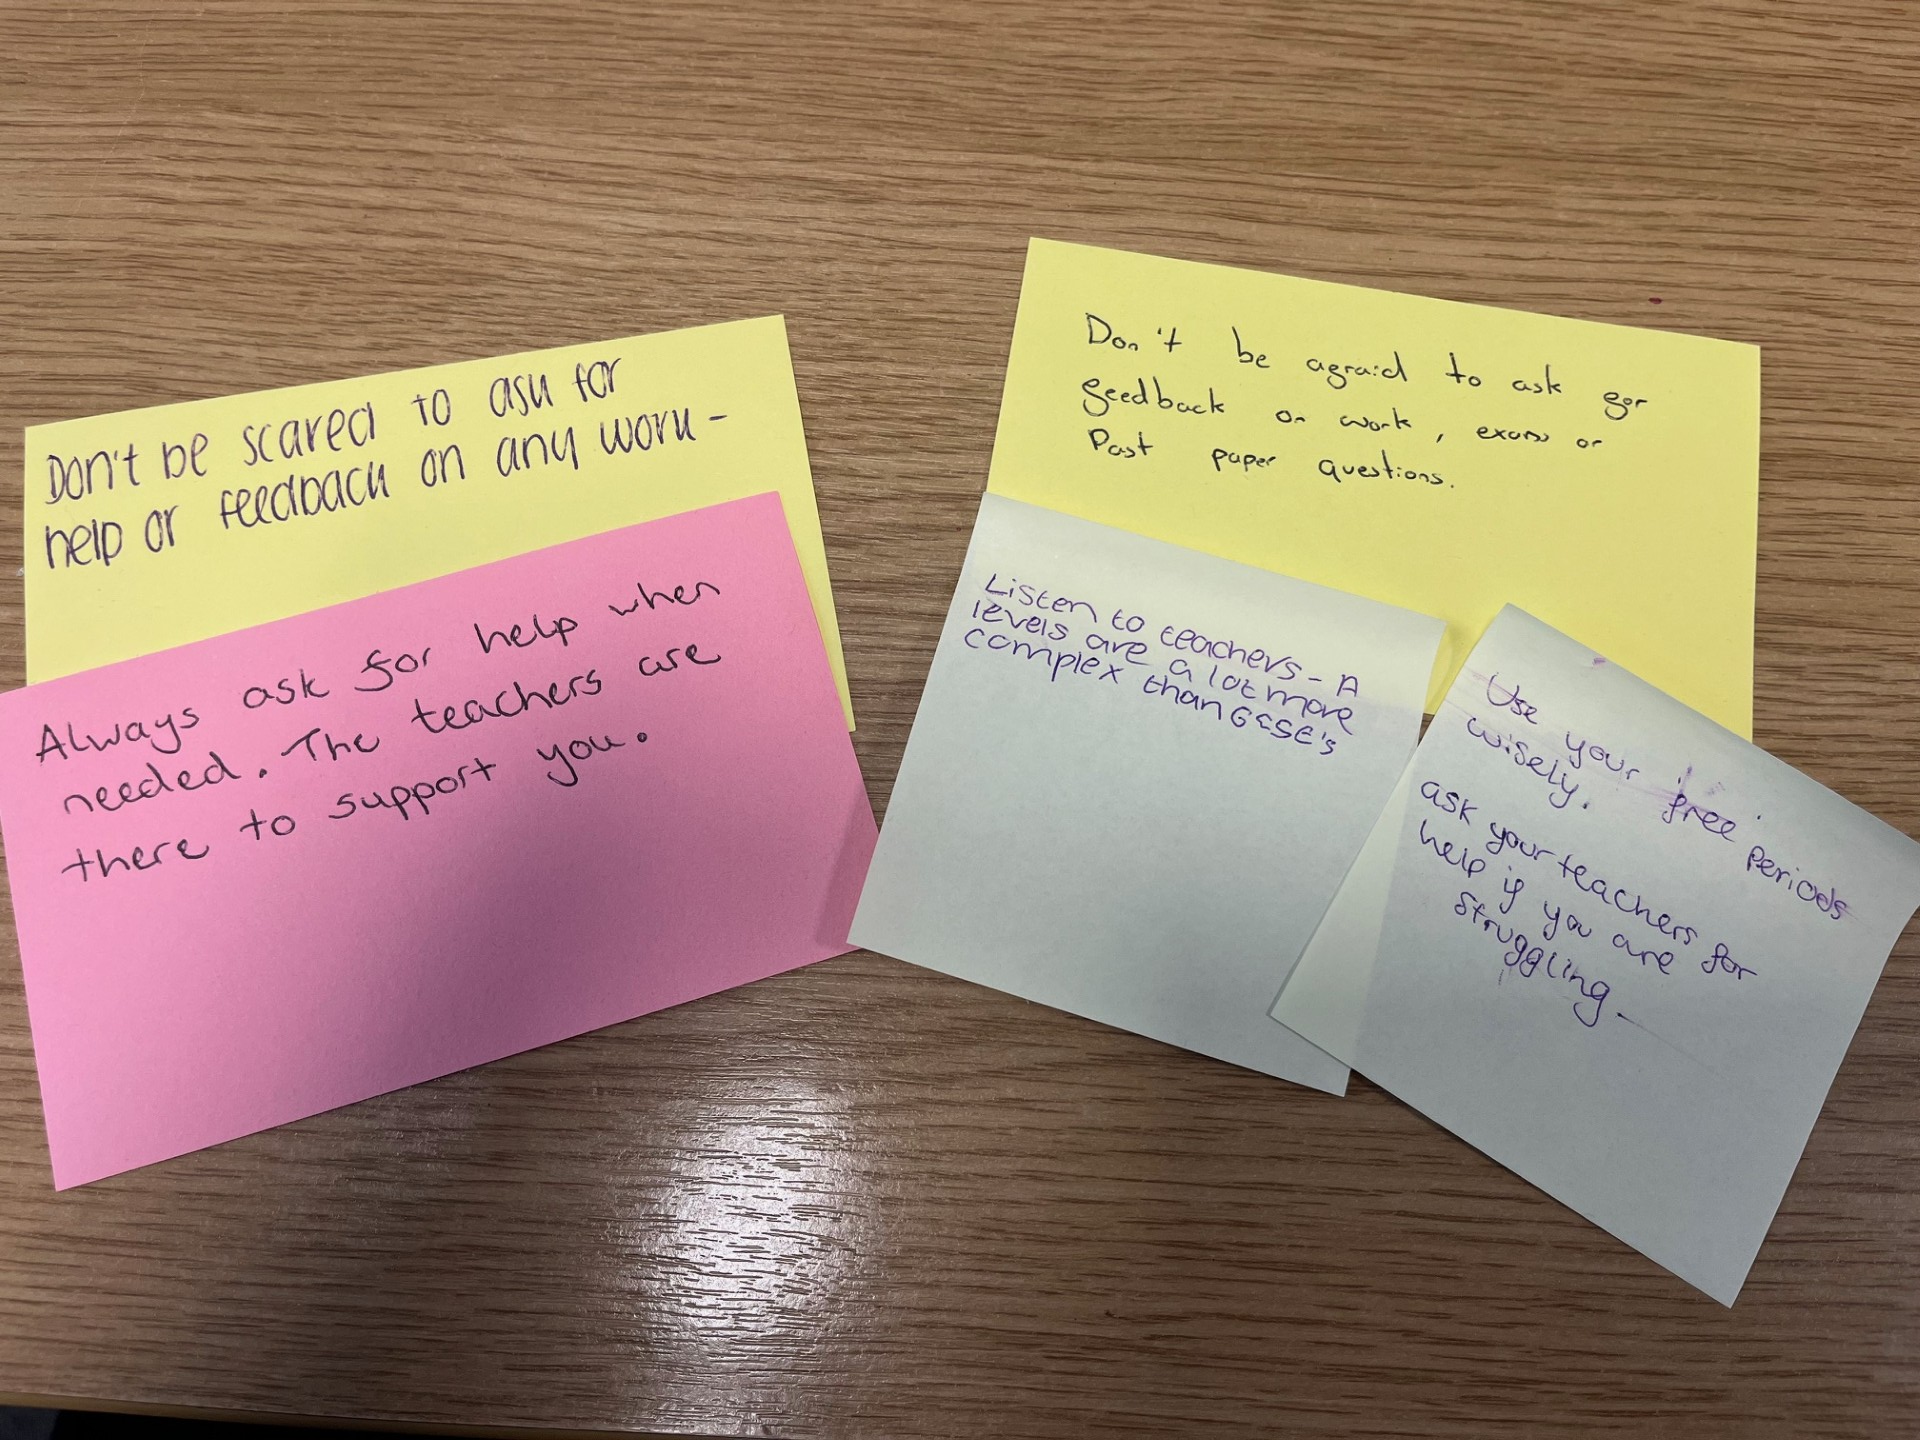 Don't be scared to ask for
help or feedback on any work -
Always ask for help when
needed. The teachers are
there to support you.
Don't be afraid to ask for
feedback on work, exams or
Past paper questions.
Listen to teachers - A
levels are a lot more
complex than GCSE's
Use your free periods
wisely.
ask your teachers for
help if you are
struggling -